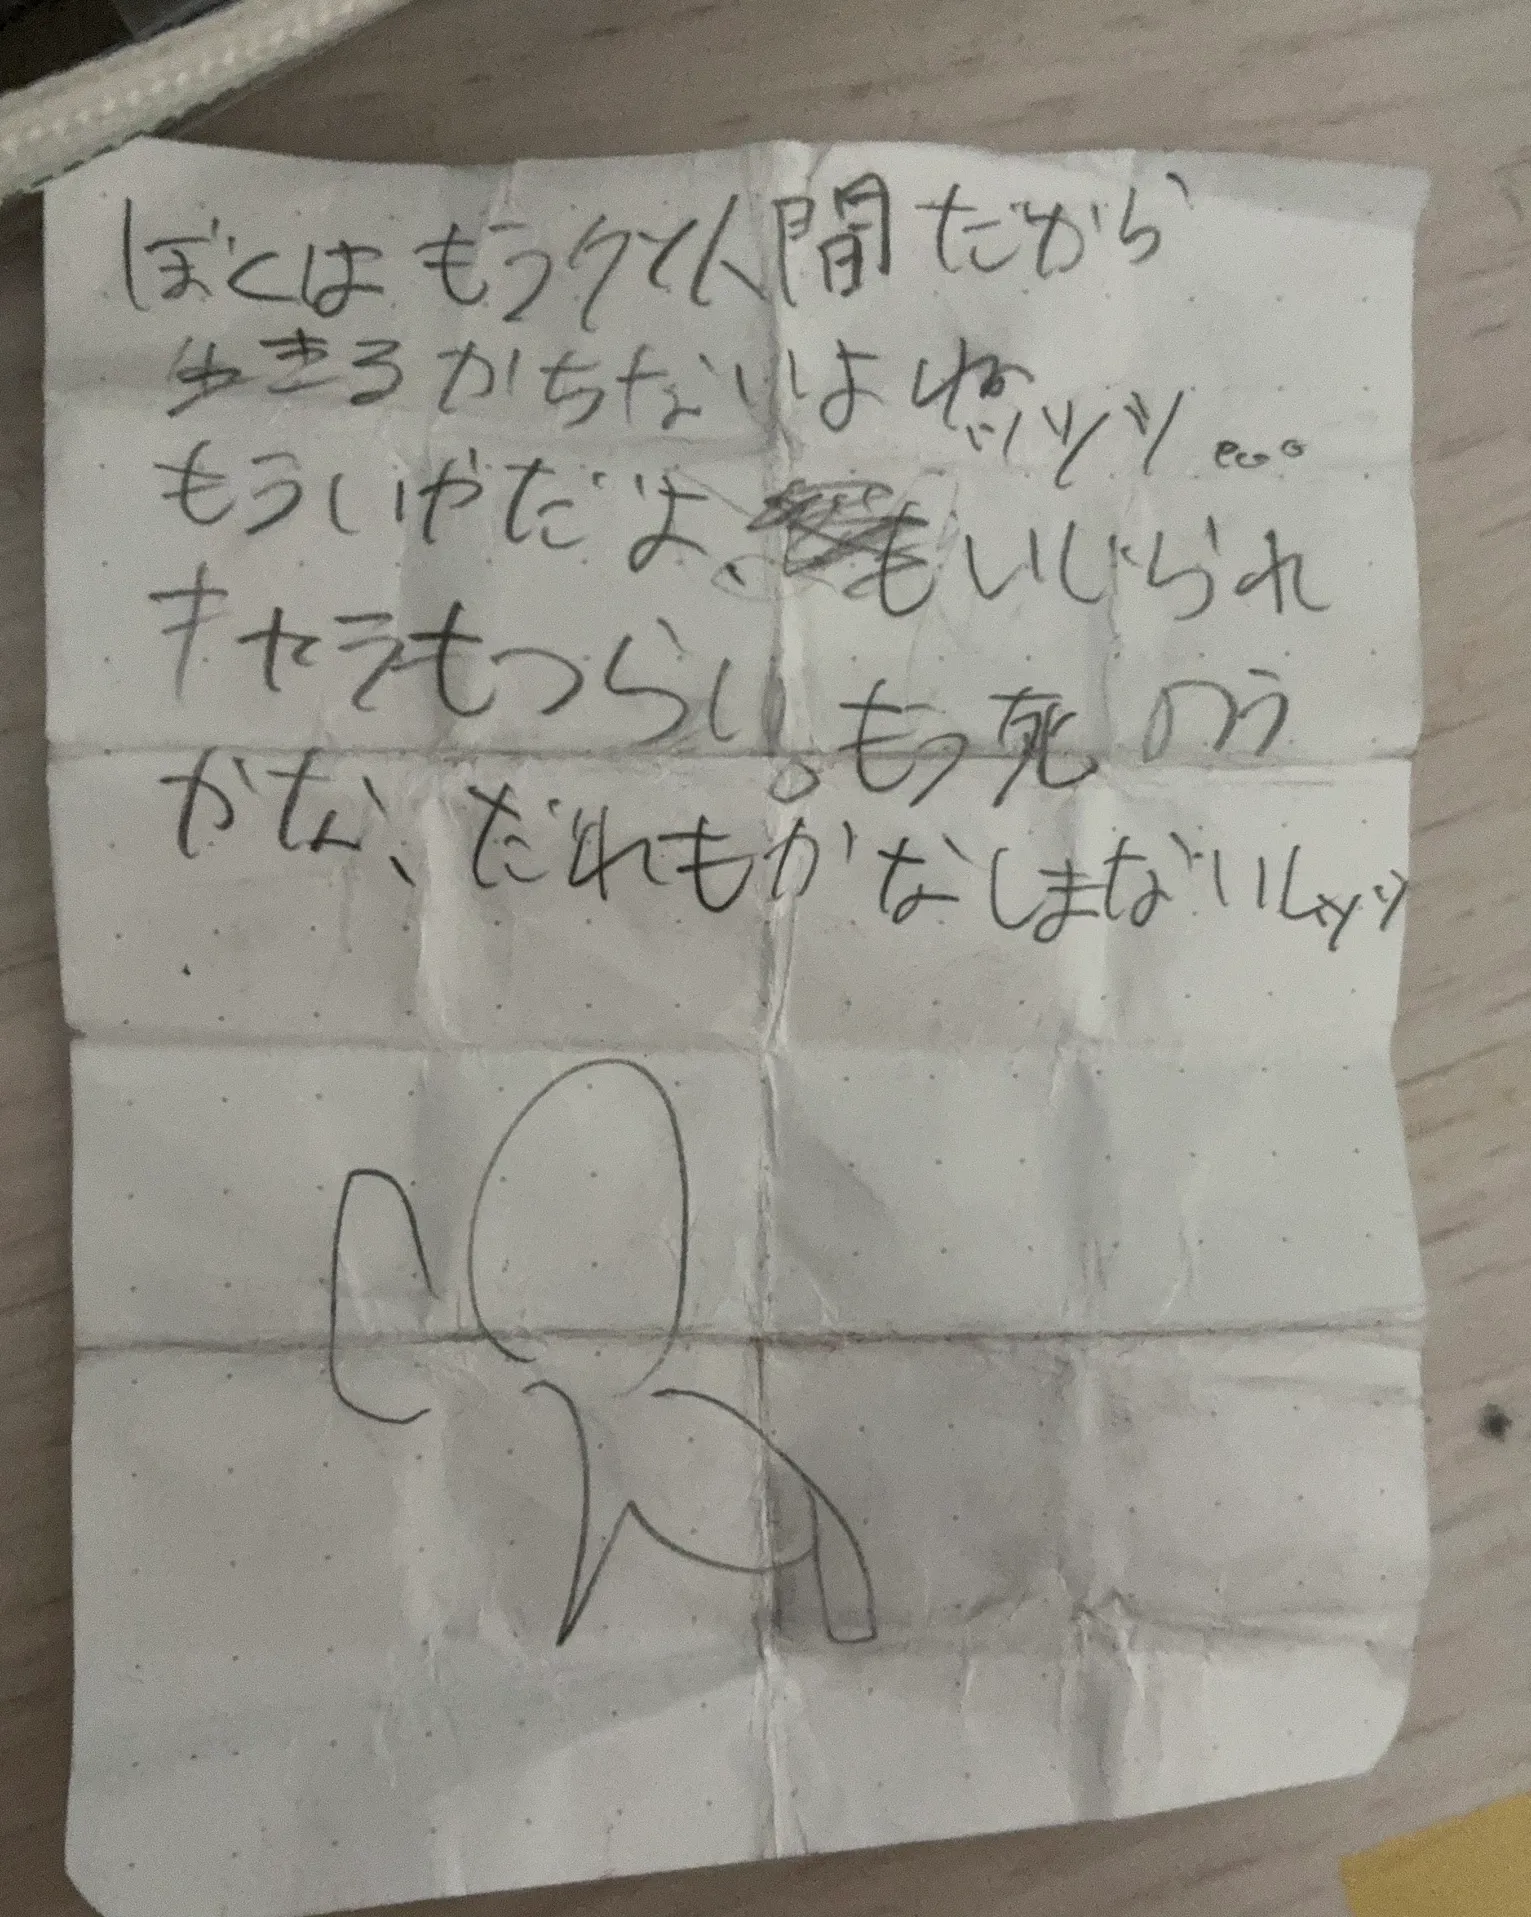 ぼくはもうクソ人間だから
生きるかちないよね ハハハ...
もういやだよ、もいじられ
キャラもつらい。もう死のう
かな、だれもかなしまないし